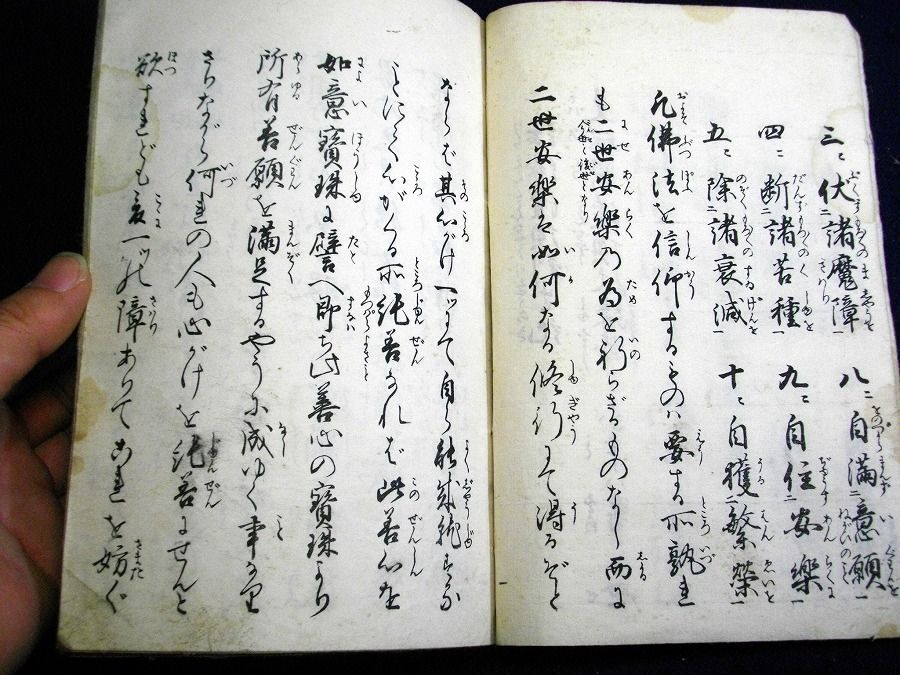 三ニ伏二諸魔障一 八ニ自満二意願一
四ニ断二諸苦種一 九ニ自住二安樂一
五ニ除二諸衰減一 十ニ自獲二繁榮一
凡佛法を信仰するものハ要する所孰れ
も二世安樂乃為を祈らざるものなし而に
二世安樂ハ如何なる修行にて得るぞと
ならば其心がけ一ツにて自ら能成就するな
ことにて心がくる所純善なれば此善心を
如意寶珠に譬へ即ち此善心の寶珠より
所有善願を満足するやうに成ゆく事なり
さりながら何れの人も心がけを純善にせんと
欲すれども爰に一ツの障ありてこれを妨ぐ